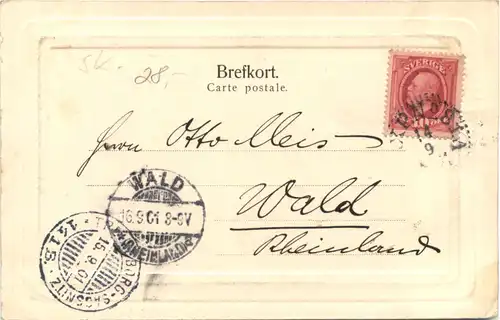 SK. 28,-
SVERIGE
Brefkort.
Carte postale.
14
9
Herrn Otto Meis
WALD
16.9.01 8-9V
* (RHEINLAND) *
Wald
Rheinland
15.9.01
BORG-SASSNITZ
141 S.